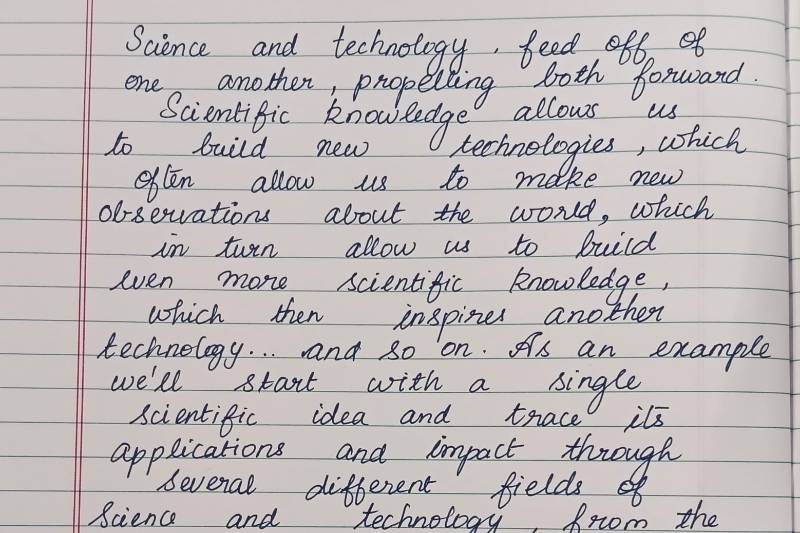 Science and technology, feed off of
one another, propelling both forward.
Scientific knowledge allows us
to build new technologies, which
often allow us to make new
observations about the world, which
in turn allow us to build
even more scientific knowledge,
which then inspires another
technology... and so on. As an example
we'll start with a single
scientific idea and trace its
applications and impact through
several different fields of
Science and technology, from the